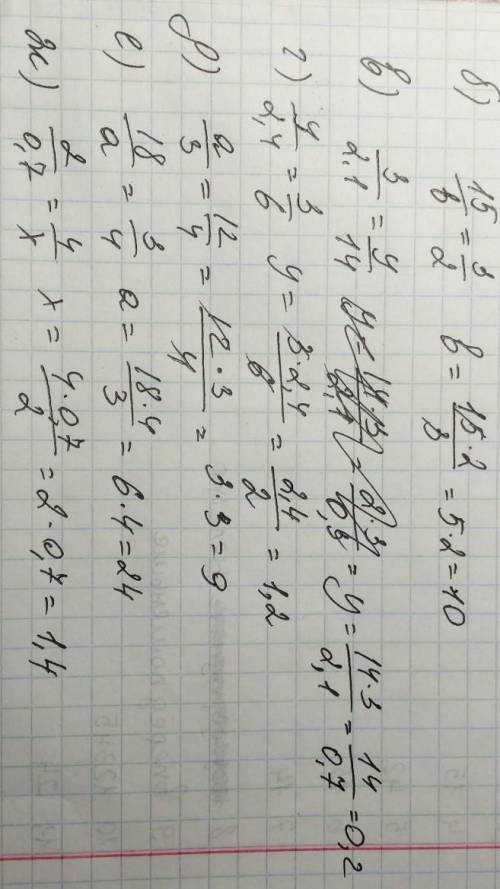 б) 15/в = 3/2 в = 15·2/3 = 5·2 = 10
в) 3/2,1 = y/14 = y = 14·3/2,1 = 14/0,7 = 0,2
г) y/2,4 = 3/6 y = 3·2,4/6 = 2,4/2 = 1,2
д) a/3 = 12/4 = 12·3/4 = 3·3 = 9
е) 18/a = 3/4 a = 18·4/3 = 6·4 = 24
ж) 2/0,7 = 4/x x = 4·0,7/2 = 2·0,7 = 1,4